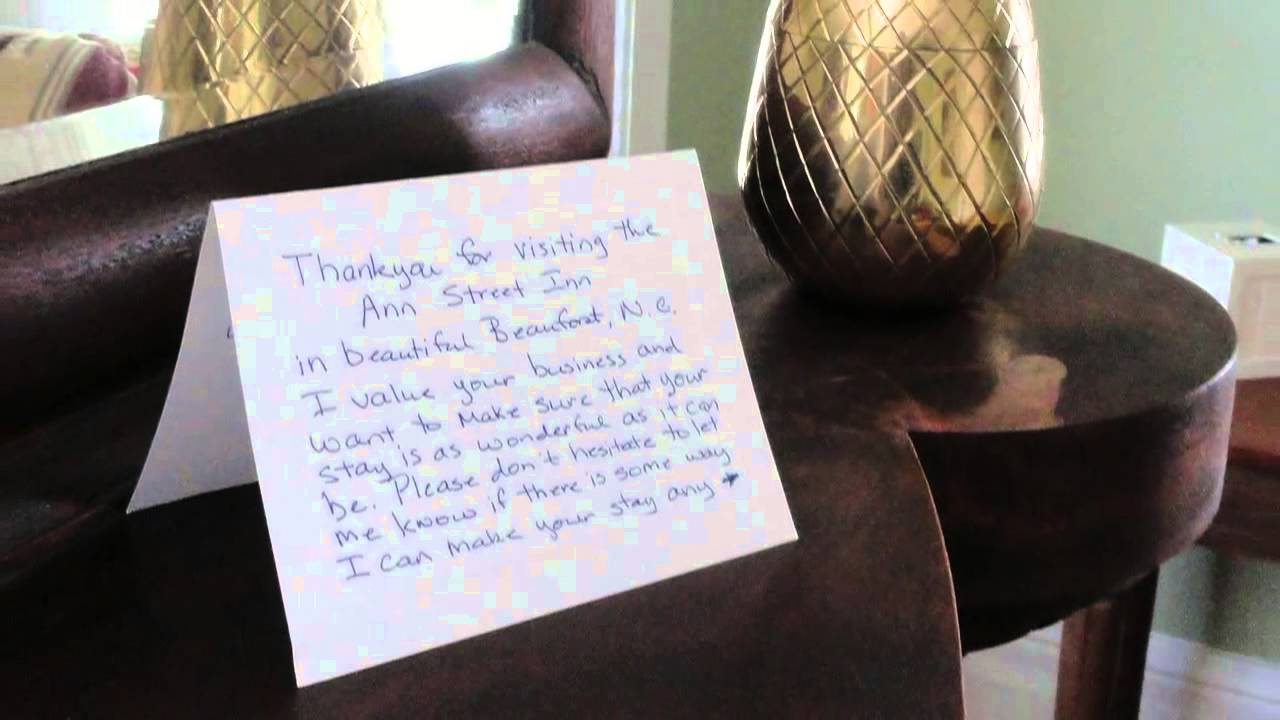 Thankyou for visiting the
Ann Street Inn
in beautiful Beaufort, N.C.
I value your business and
want to make sure that your
stay is as wonderful as it can
be. Please don't hesitate to let
me know if there is some way
I can make your stay any →